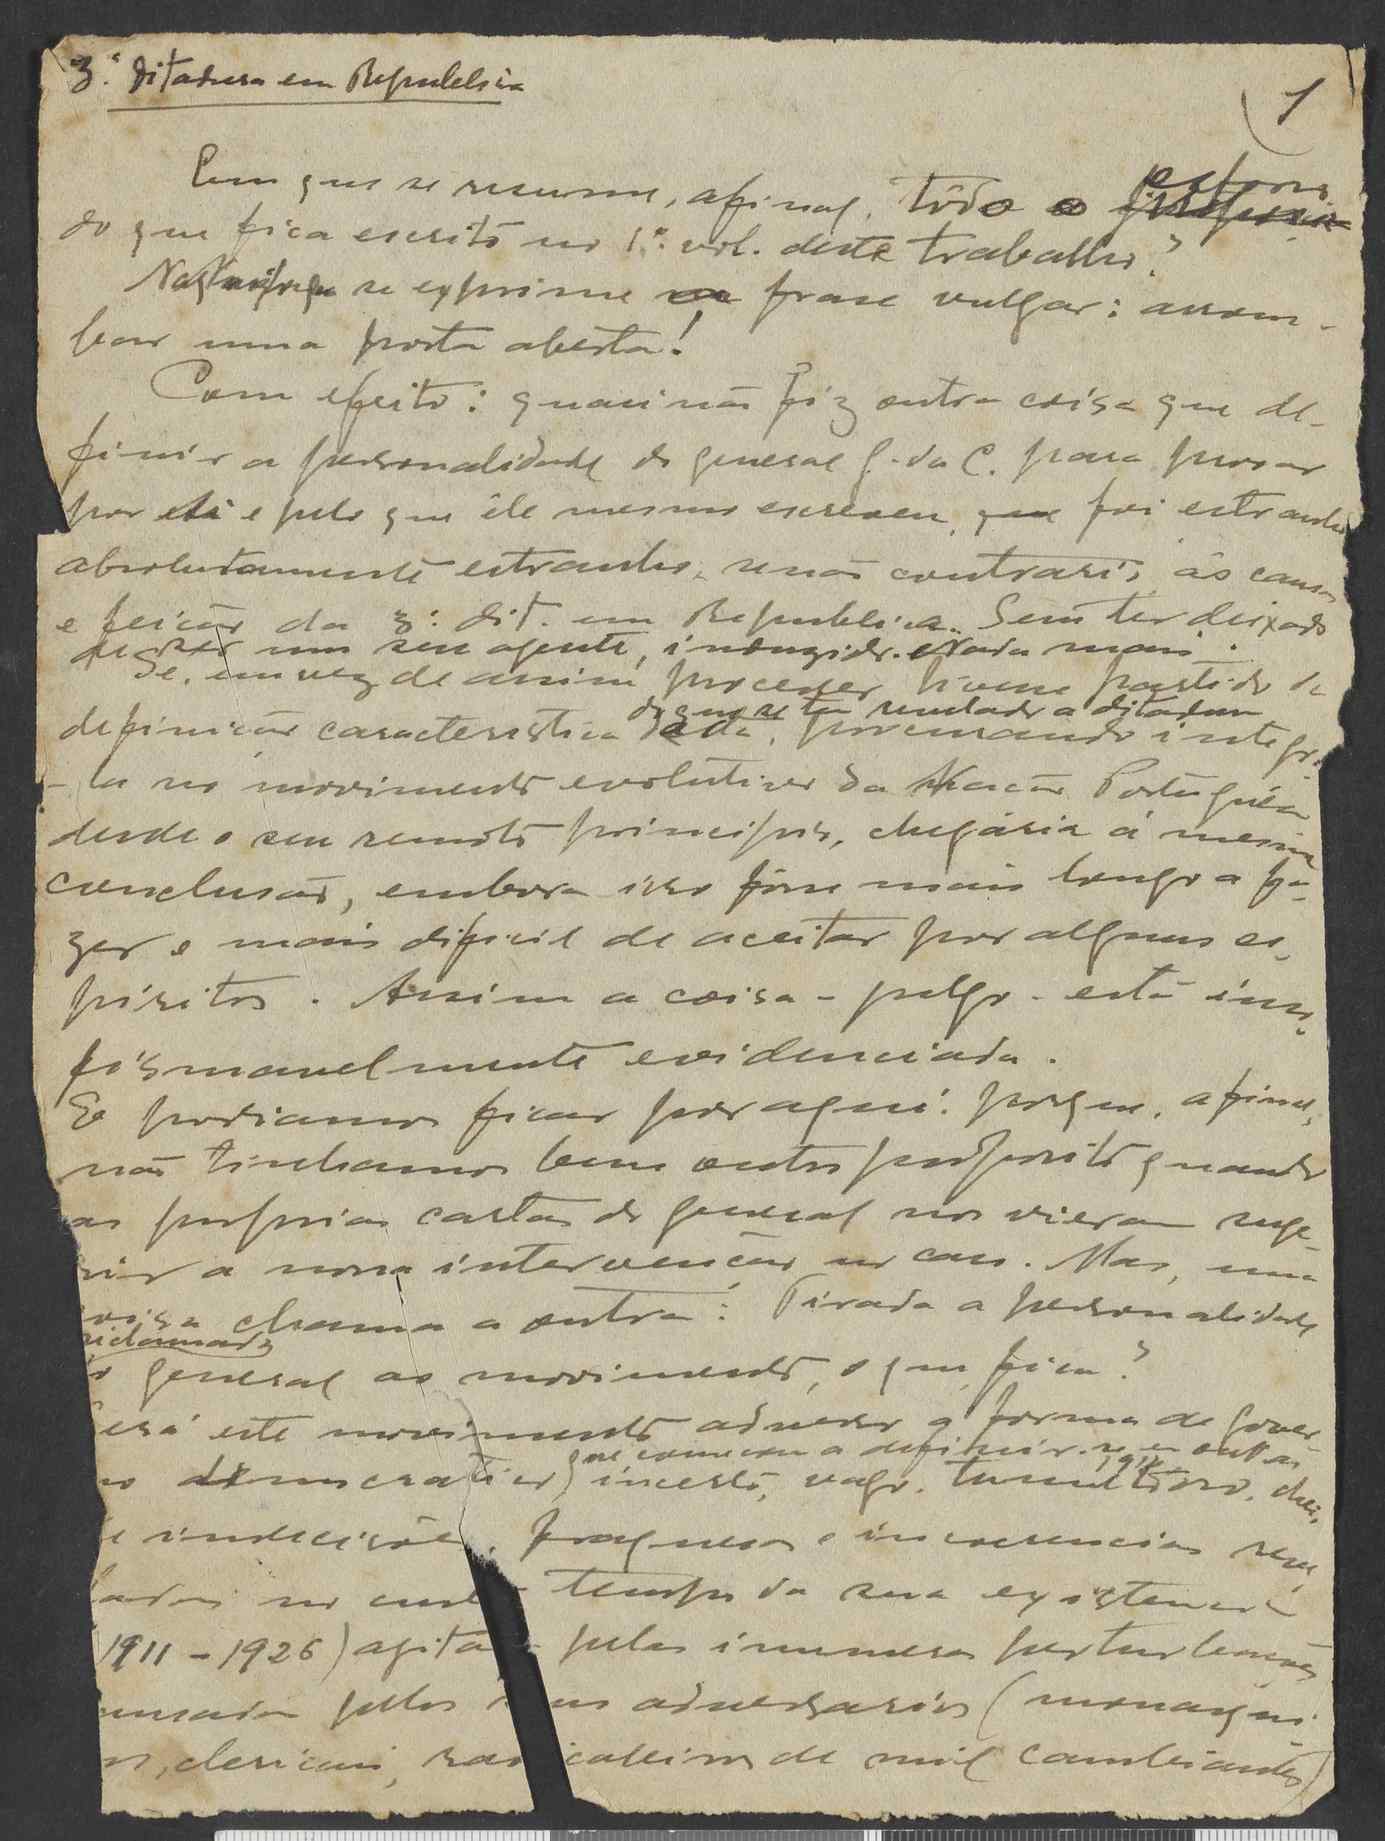 3.ª ditadura em Republica
1
Em que se resume, afinal, tôdo o esforço
do que fica escrito no 1.º vol. deste trabalho?
No que se exprime na frase vulgar: arrom-
bar uma porta aberta!
Com efeito: quasi não fiz outra coisa que de-
finir a personalidade do general G. da C. para provar
por ela e pelo que êle mesmo escreveu, que foi estranho
absolutamente estranho, senão contrario, ás causas
e feição da 3.ª dit. em Republica. Sem ter deixado
de ser um seu agente, induzido. Nada mais.
Se, em vez de assim proceder, tivesse partido da
do que se tem revelado a ditadura
definição caracteristica dada, procurando integra-
-la no movimento evolutivo da Nação Portuguêsa
desde o seu remoto principio, chegaria á mesma
conclusão, embora isso fôsse mais longo a fa-
zer e mais dificil de aceitar por alguns es-
piritos. Assim a coisa - julgo - está inso-
fismavelmente evidenciada.
E podiamos ficar por aqui: porque, afinal,
não tinhamos bem outro proposito quando
as proprias cartas do general nos vieram suge-
rir a nossa intervenção no caso. Mas, uma
coisa chama a outra: Tirada a personalidade
o general ao movimento, o que fica?
Será este movimento adverso á forma de gover-
que começou a definir-se em
no democratico, incerto, vago, tumultuoso,
e indecisões, fraquesas e incoerencias reve-
ladas no curto tempo da sua existencia
(1911 - 1926) agitada pelas inumeras perturbações
causadas pelos seus adversarios (monarqui-
cos, clericais, radicalismos de mil cambiantes)